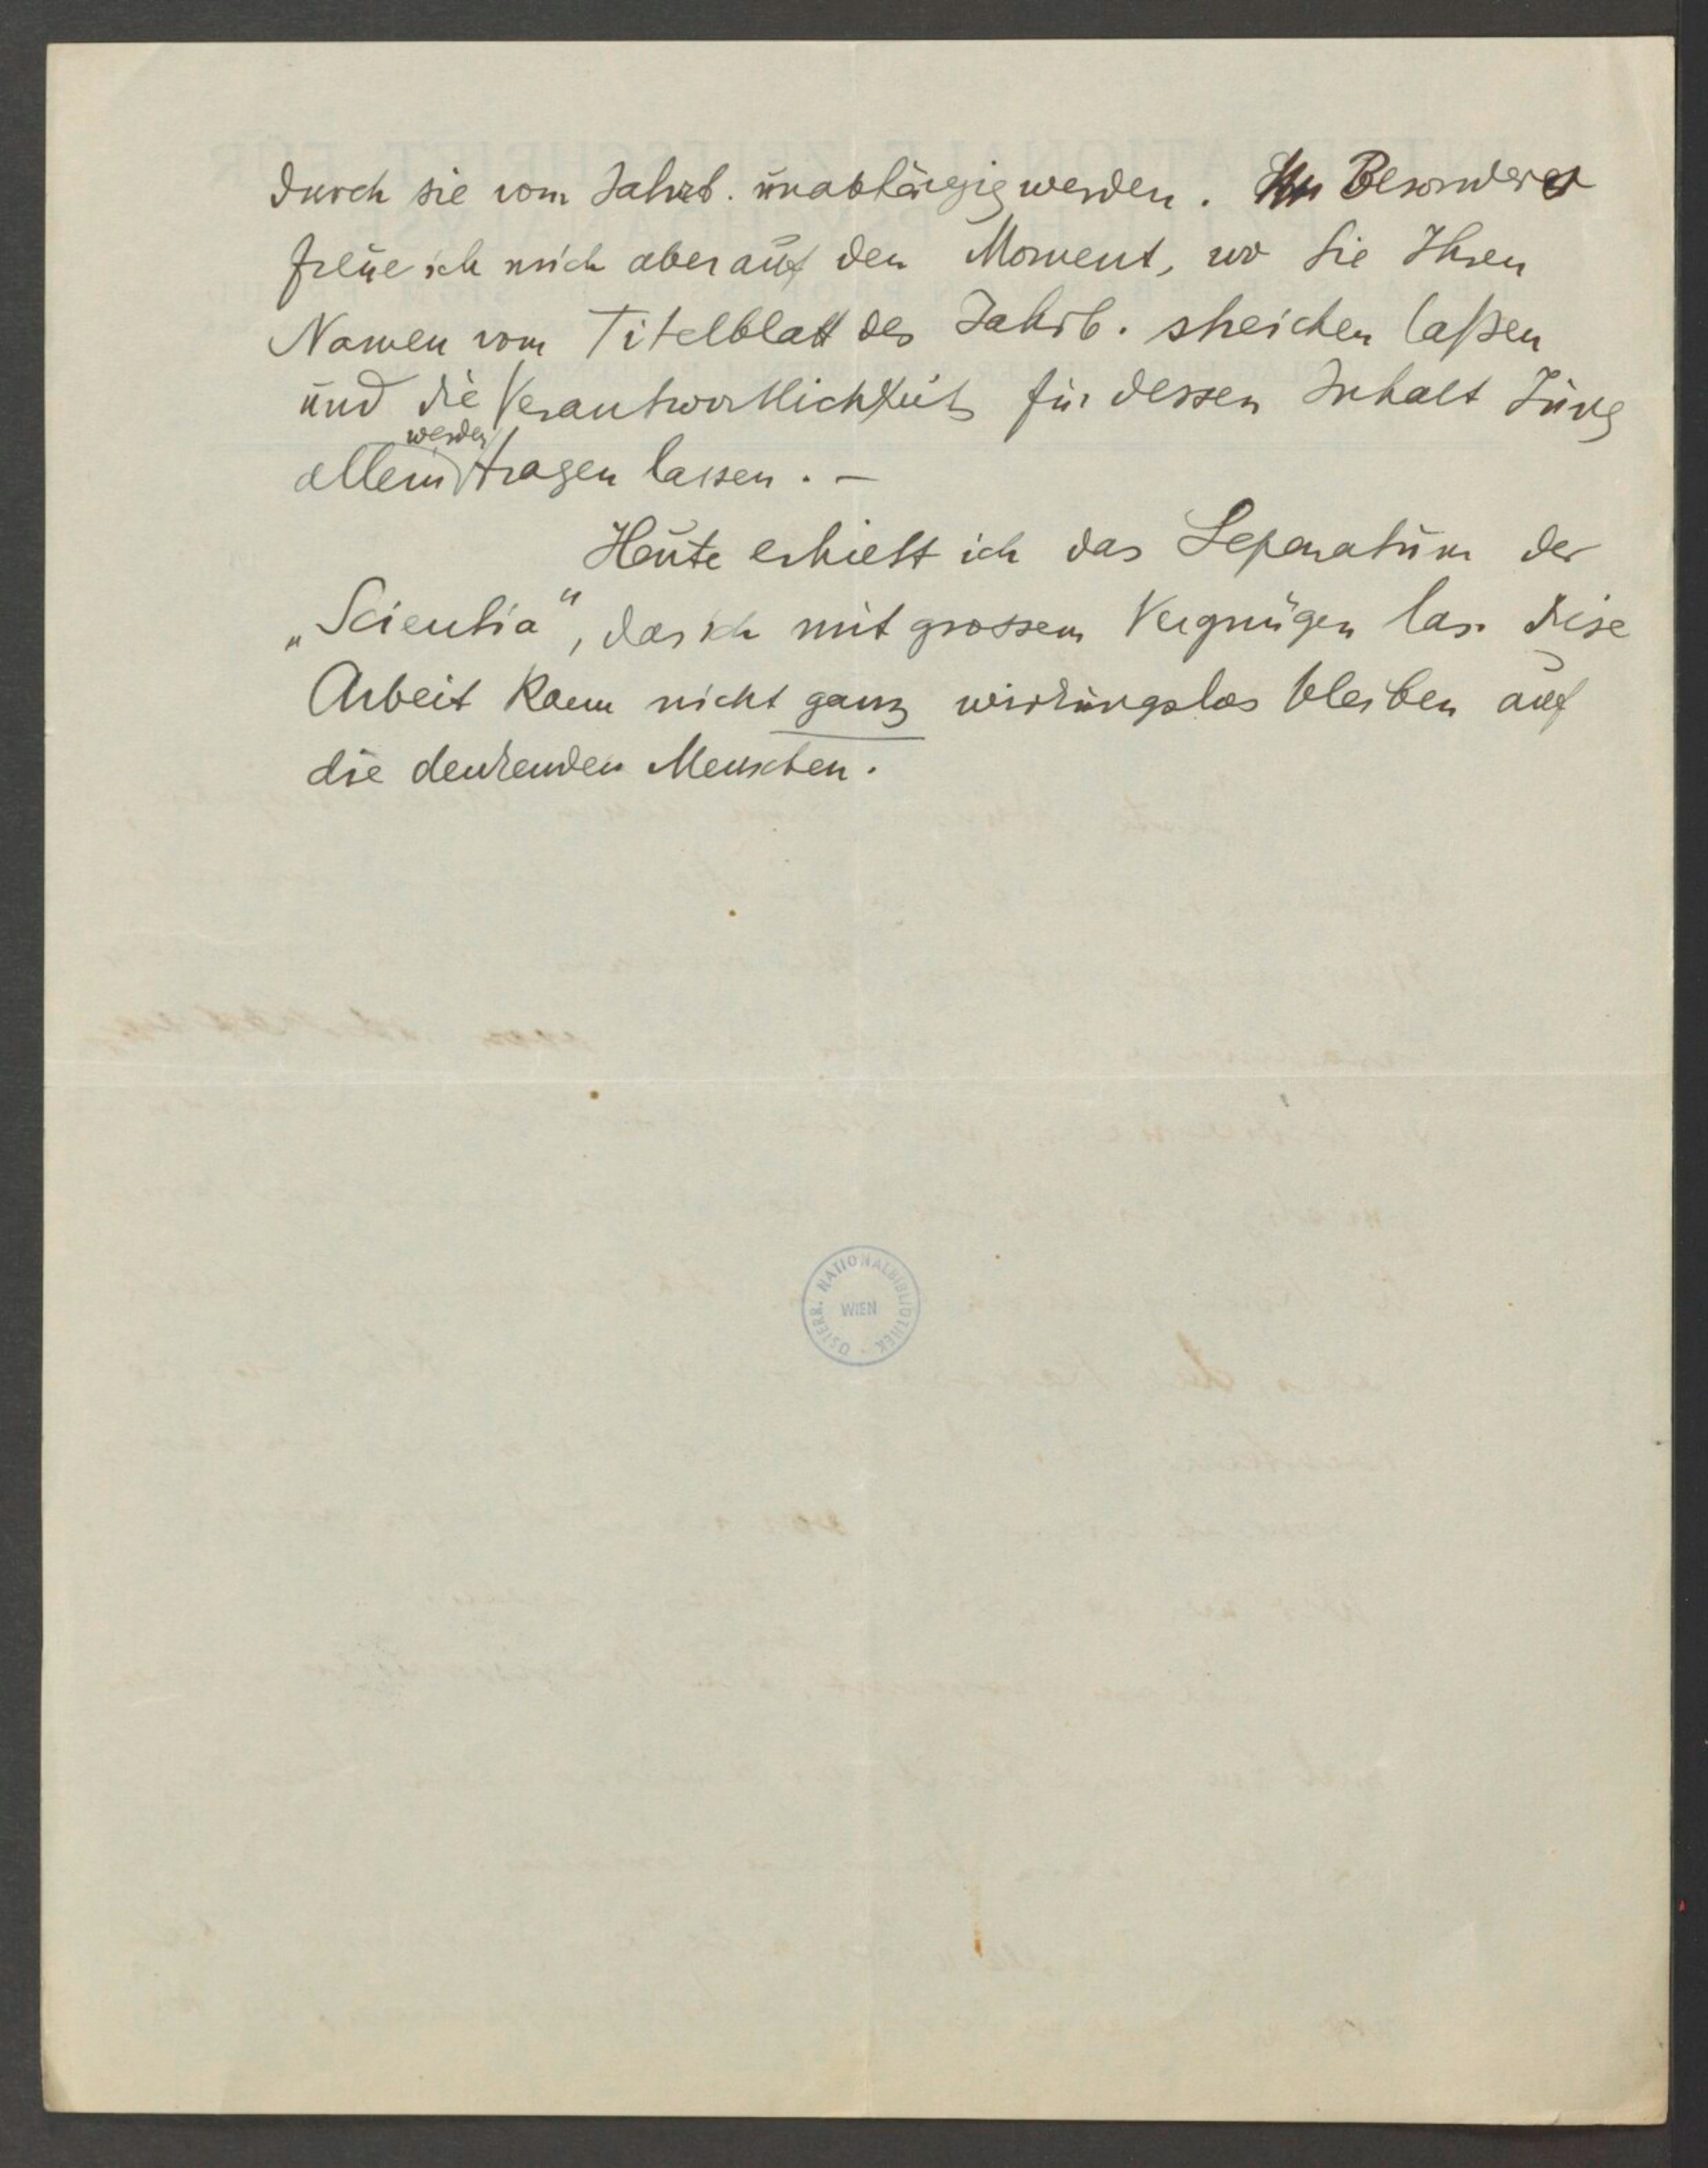 durch sie vom Jahrb. unabhängig werden. Besonders
freue ich mich aber auf den Moment, wo Sie Ihren
Namen vom Titelblatt des Jahrb. streichen laßen
und die Verantwortlichkeit für dessen Inhalt Jung
allein werden tragen lassen. –
Heute erhielt ich das Separatum der
„Scientia“, das ich mit grossem Vergnügen las. Diese
Arbeit kann nicht ganz wirkungslos bleiben auf
die denkenden Menschen.
ÖSTERR. NATIONALBIBLIOTHEK
WIEN